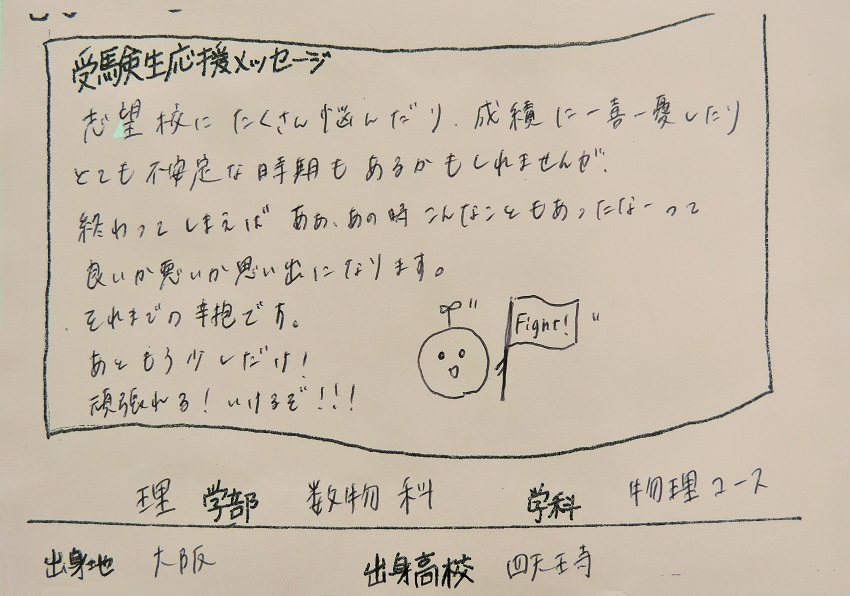 受験生応援メッセージ
志望校に たくさん悩んだり、成績に一喜一憂したり
とても不安定な時期もあるかもしれませんが、
終わってしまえば ああ、あの時こんなこともあったなーって
良いか悪いか思い出になります。
それまでの辛抱です。
あともう少しだけ!
頑張れる!いけるぞ!!!
Fight!
理 学部 数物科 学科 物理コース
出身地 大阪 出身高校 四天王寺